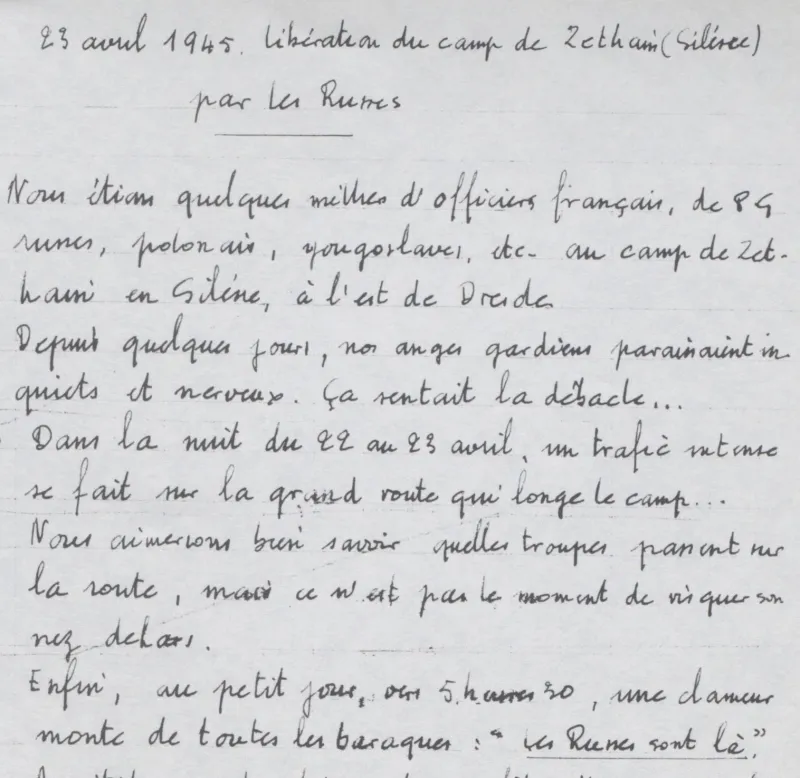 23 avril 1945. Libération du camp de Zethain (Silésie)
par les Russes
Nous étions quelques milliers d'officiers français, de P G
russes, polonais, yougoslaves, etc- au camp de Zet-
hain en Silésie, à l'est de Dresde
Depuis quelques jours, nos anges gardiens paraissaient in
quiets et nerveux. Ça sentait la débacle...
Dans la nuit du 22 au 23 avril, un trafic intense
se fait sur la grand route qui longe le camp...
Nous aimerions bien savoir quelles troupes passent sur
la route, mais ce n'est pas le moment de risquer son
nez dehors.
Enfin, au petit jour, vers 5 heures 30, une clameur
monte de toutes les baraques : "Les Russes sont là"